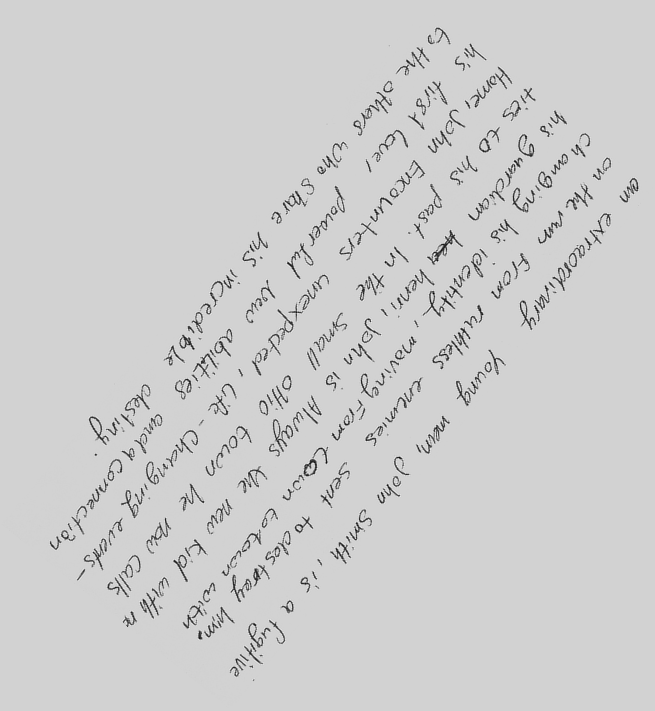 an extraordinary young mem, John Smith, is a fugitive
on the run from ruthless enemies sent to destroy him.
changing his identity, moving from town to town with
his guardian henri, John is Always the new kid with n
ties to his past. In the small ohio town he now calls
Home, John Encounters unexpected, life-changing events-
his first love, powerful new abilities and a connection
to the others who share his incredible destiny.